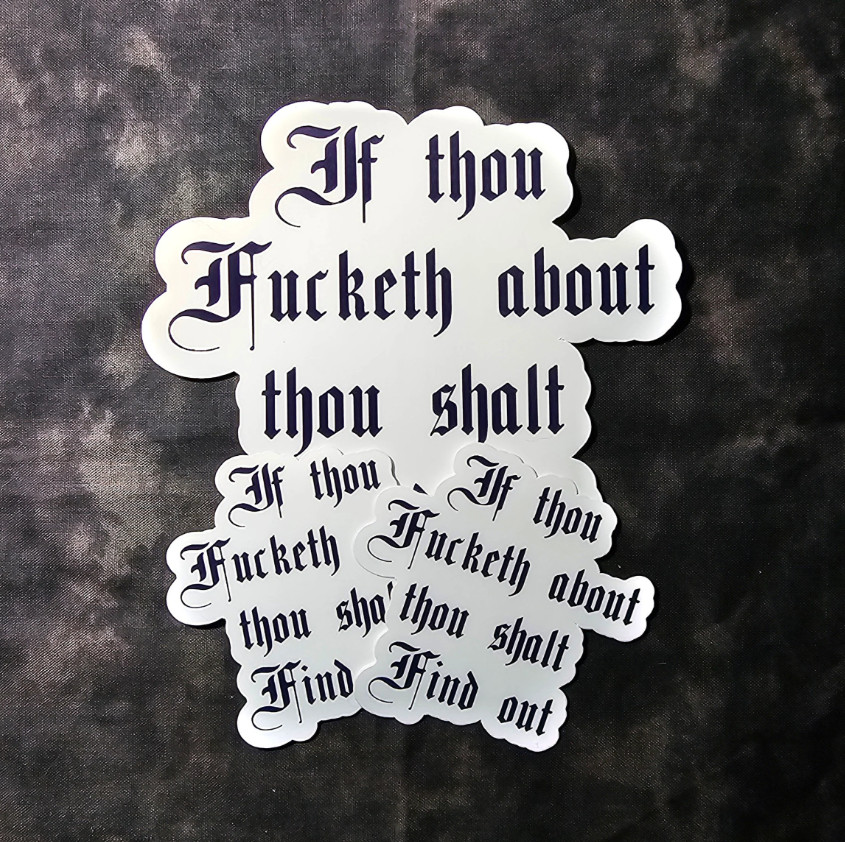 If thou
Fucketh about
thou shalt
If thou
Fucketh
thou
Find
If thou
Fucketh about
thou shalt
Find out